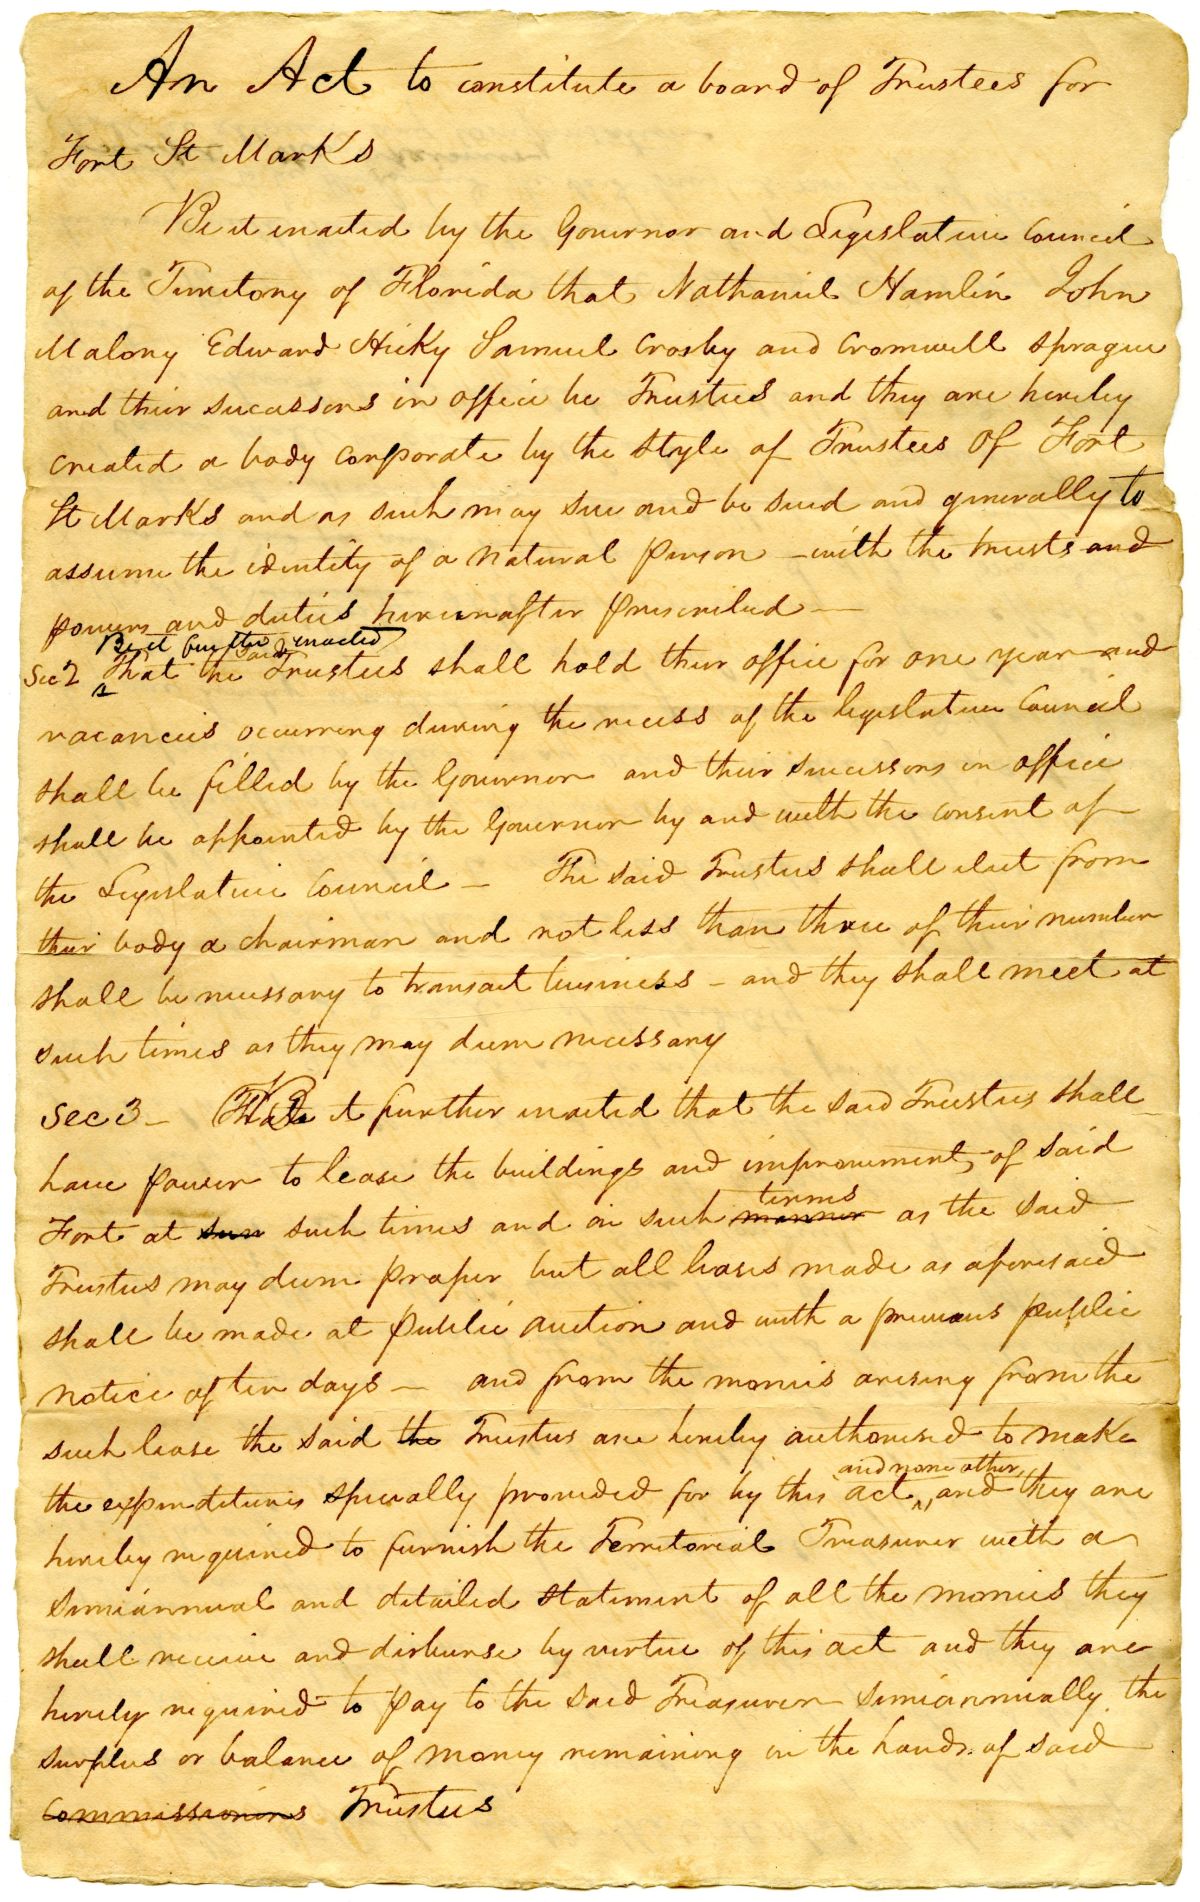 An Act to constitute a board of Trustees for
Fort St Marks
Be it enacted by the Governor and Legislative Council
of the Territory of Florida that Nathaniel Hamlin John
Malony Edward Hicky Samuel Crosby and Cromwell Sprague
and their successors in office be Trustees and they are hereby
created a body corporate by the style of Trustees of Fort
St Marks and as such may sue and be sued and generally to
assume the identity of a natural person – with the trusts and
powers and duties hereinafter prescribed —
Be it further enacted
Sec 2 That the said Trustees shall hold their office for one year and
vacancies occurring during the recess of the legislative Council
shall be filled by the Governor and their successors in office
shall be appointed by the Governor by and with the consent of
the Legislative Council – The said Trustees shall elect from
their body a chairman and not less than three of their number
shall be necessary to transact business – and they shall meet at
such times as they may deem necessary
Sec 3 – Be it further enacted that the said Trustees shall
have power to lease the buildings and improvements of said
terms
Fort at such times and on such manner as the said
Trustees may deem proper but all leases made as aforesaid
shall be made at public auction and with a previous public
notice of ten days – and from the monies arising from the
such lease the said the Trustees are hereby authorised to make
and none other
the expenditures specially provided for by this act, and they are
hereby required to furnish the Territorial Treasurer with a
semiannual and detailed statement of all the monies they
shall receive and disburse by virtue of this act and they are
hereby required to pay to the said Treasurer semiannually the
surplus or balance of money remaining in the hands of said
Commissioners Trustees